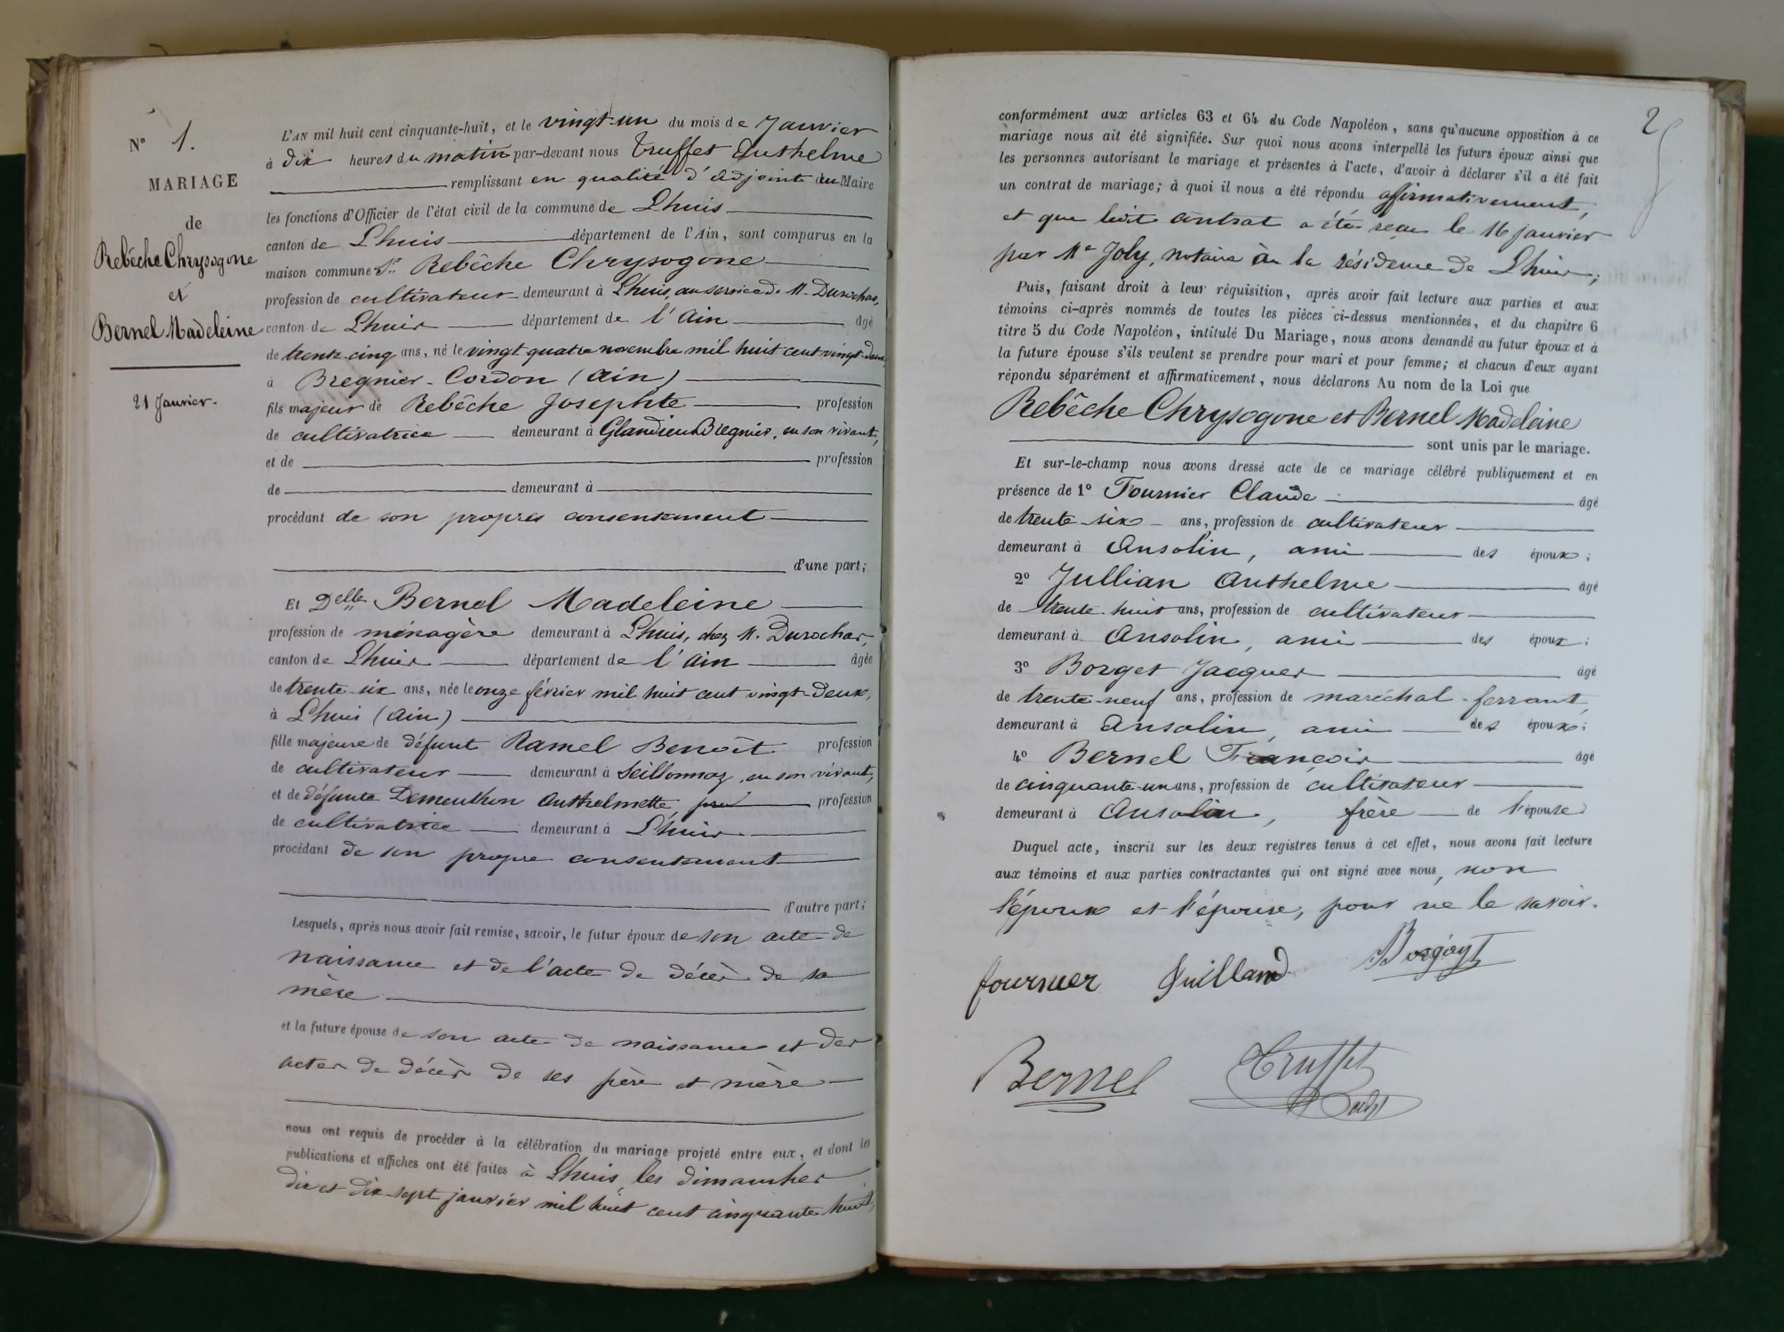 N° 1.
MARIAGE
de
Rebêche Chrysogone
et
Bernel Madeleine
21 Janvier.
L'AN mil huit cent cinquante-huit, et le vingt-un du mois de Janvier
à dix heures du matin par-devant nous Truffet Anthelme
remplissant en qualité d'adjoint au Maire
les fonctions d'Officier de l'état civil de la commune de Lhuis
canton de Lhuis département de l'Ain, sont comparus en la
maison commune Sr Rebêche Chrysogone
profession de cultivateur demeurant à Lhuis, au service de M. Durochat,
canton de Lhuis département de l'Ain âgé
de trente-cinq ans, né le vingt quatre novembre mil huit cent vingt-deux
à Bregnier-Cordon (Ain)
fils majeur de Rebêche Josephte profession
de cultivatrice demeurant à Glandieu Bregnier, en son vivant,
et de profession
de demeurant à
procédant de son propres consentement
d'une part;
Et Delle Bernel Madeleine
profession de ménagère demeurant à Lhuis, chez M. Durochat,
canton de Lhuis département de l'Ain âgée
de trente-six ans, née le onze février mil huit cent vingt-deux,
à Lhuis (Ain)
fille majeure de défunt Ramel Benoît profession
de cultivateur demeurant à Seillonnaz, en son vivant,
et de défunte Demeuthon Anthelmette, profession
de cultivatrice demeurant à Lhuis
procédant de son propre consentement
d'autre part;
Lesquels, après nous avoir fait remise, savoir, le futur époux de son acte de
naissance et de l'acte de décès de sa
mère
et la future épouse de son acte de naissance et des
actes de décès de ses père et mère
nous ont requis de procéder à la célébration du mariage projeté entre eux, et dont les
publications et affiches ont été faites à Lhuis, les dimanches
dix et dix-sept janvier mil huit cent cinquante huit,
2
conformément aux articles 63 et 64 du Code Napoléon, sans qu'aucune opposition à ce
mariage nous ait été signifiée. Sur quoi nous avons interpellé les futurs époux ainsi que
les personnes autorisant le mariage et présentes à l'acte, d'avoir à déclarer s'il a été fait
un contrat de mariage; à quoi il nous a été répondu affirmativement,
et que ledit contrat a été reçu le 16 janvier
par Me Joly, notaire à la résidence de Lhuis;
Puis, faisant droit à leur réquisition, après avoir fait lecture aux parties et aux
témoins ci-après nommés de toutes les pièces ci-dessus mentionnées, et du chapitre 6
titre 5 du Code Napoléon, intitulé Du Mariage, nous avons demandé au futur époux et à
la future épouse s'ils veulent se prendre pour mari et pour femme; et chacun d'eux ayant
répondu séparément et affirmativement, nous déclarons Au nom de la Loi que
Rebêche Chrysogone et Bernel Madeleine
sont unis par le mariage.
Et sur-le-champ nous avons dressé acte de ce mariage célébré publiquement et en
présence de 1° Fournier Claude âgé
de trente-six ans, profession de cultivateur
demeurant à Ansolin, ami des époux;
2° Jullian Anthelme âgé
de trente-huit ans, profession de cultivateur
demeurant à Ansolin, ami des époux;
3° Borget Jacques âgé
de trente-neuf ans, profession de maréchal-ferrant,
demeurant à Ansolin, ami des époux;
4° Bernel François âgé
de cinquante-un ans, profession de cultivateur
demeurant à Ansolin, frère de l'épouse
Duquel acte, inscrit sur les deux registres tenus à cet effet, nous avons fait lecture
aux témoins et aux parties contractantes qui ont signé avec nous, non
l'époux et l'épouse, pour ne le savoir.
fournier Juilland Borgeyt
Bernel Truffet